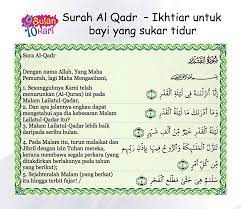 9 Bulan 10 Hari
Surah Al Qadr - Ikhtiar untuk
bayi yang sukar tidur
Sura Al-Qadr
سُورَةُ القَدْرِ
Dengan nama Allah, Yang Maha
Pemurah, lagi Maha Mengasihani,
1. Sesungguhnya Kami telah
menurunkan (Al-Quran) ini pada
Malam Lailatul-Qadar,
إِنَّا أَنزَلْنَاهُ فِي لَيْلَةِ الْقَدْرِ
2. Dan apa jalannya engkau dapat
mengetahui apa dia kebesaran Malam
Lailatul-Qadar itu?
وَمَا أَدْرَاكَ مَا لَيْلَةُ الْقَدْرِ
3. Malam Lailatul-Qadar lebih baik
daripada seribu bulan.
لَيْلَةُ الْقَدْرِ خَيْرٌ مِّنْ أَلْفِ شَهْرٍ
4. Pada Malam itu, turun malaikat dan
Jibril dengan izin Tuhan mereka,
kerana membawa segala perkara (yang
ditakdirkan berlakunya pada tahun
yang berikut);
تَنَزَّلُ الْمَلَائِكَةُ وَالرُّوحُ فِيهَا بِإِذْنِ رَبِّهِم
مِّن كُلِّ أَمْرٍ
5. Sejahteralah Malam (yang berkat)
itu hingga terbit fajar!
سَلَامٌ هِيَ حَتَّىٰ مَطْلَعِ الْفَجْرِ